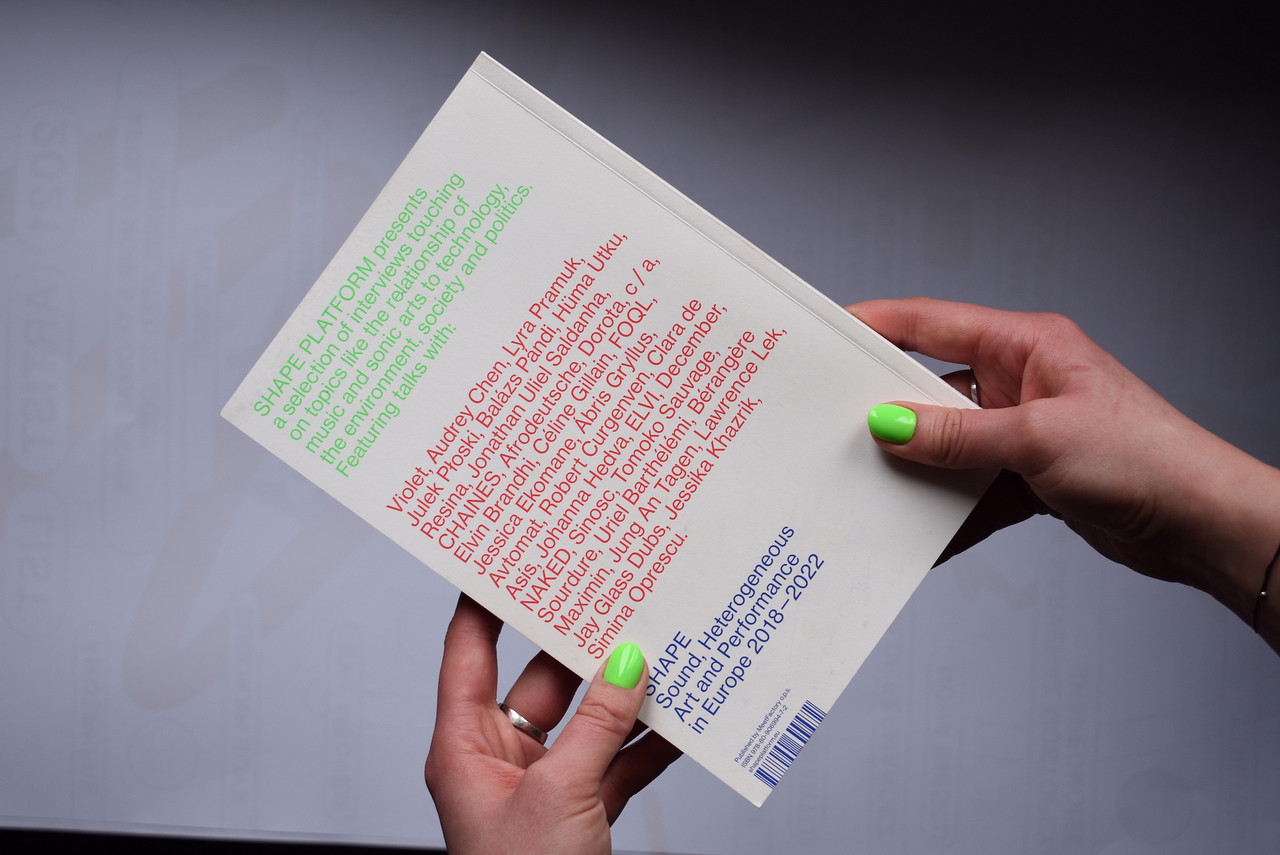 SHAPE PLATFORM presents
a selection of interviews touching
on topics like the relationship of
music and sonic arts to technology,
the environment, society and politics.
Featuring talks with:
Violet, Audrey Chen, Lyra Pramuk,
Julek Płoski, Balázs Pándi, Hüma Utku,
Resina, Jonathan Uliel Saldanha,
CHAINES, Afrodeutsche, Dorota, c / a,
Elvin Brandhi, Céline Gillain, FOQL,
Jessica Ekomane, Ábris Gryllus,
Avtomat, Robert Curgenven, Clara de
Asís, Johanna Hedva, ELVI, December,
NAKED, Sinosc, Tomoko Sauvage,
Sourdure, Uriel Barthélémi, Bérangère
Maximin, Jung An Tagen, Lawrence Lek,
Jay Glass Dubs, Jessika Khazrik,
Simina Oprescu.
SHAPE
Sound, Heterogeneous
Art and Performance
in Europe 2018–2022
Published by MeetFactory o.p.s.
ISBN 978-80-906994-7-2
shapeplatform.eu